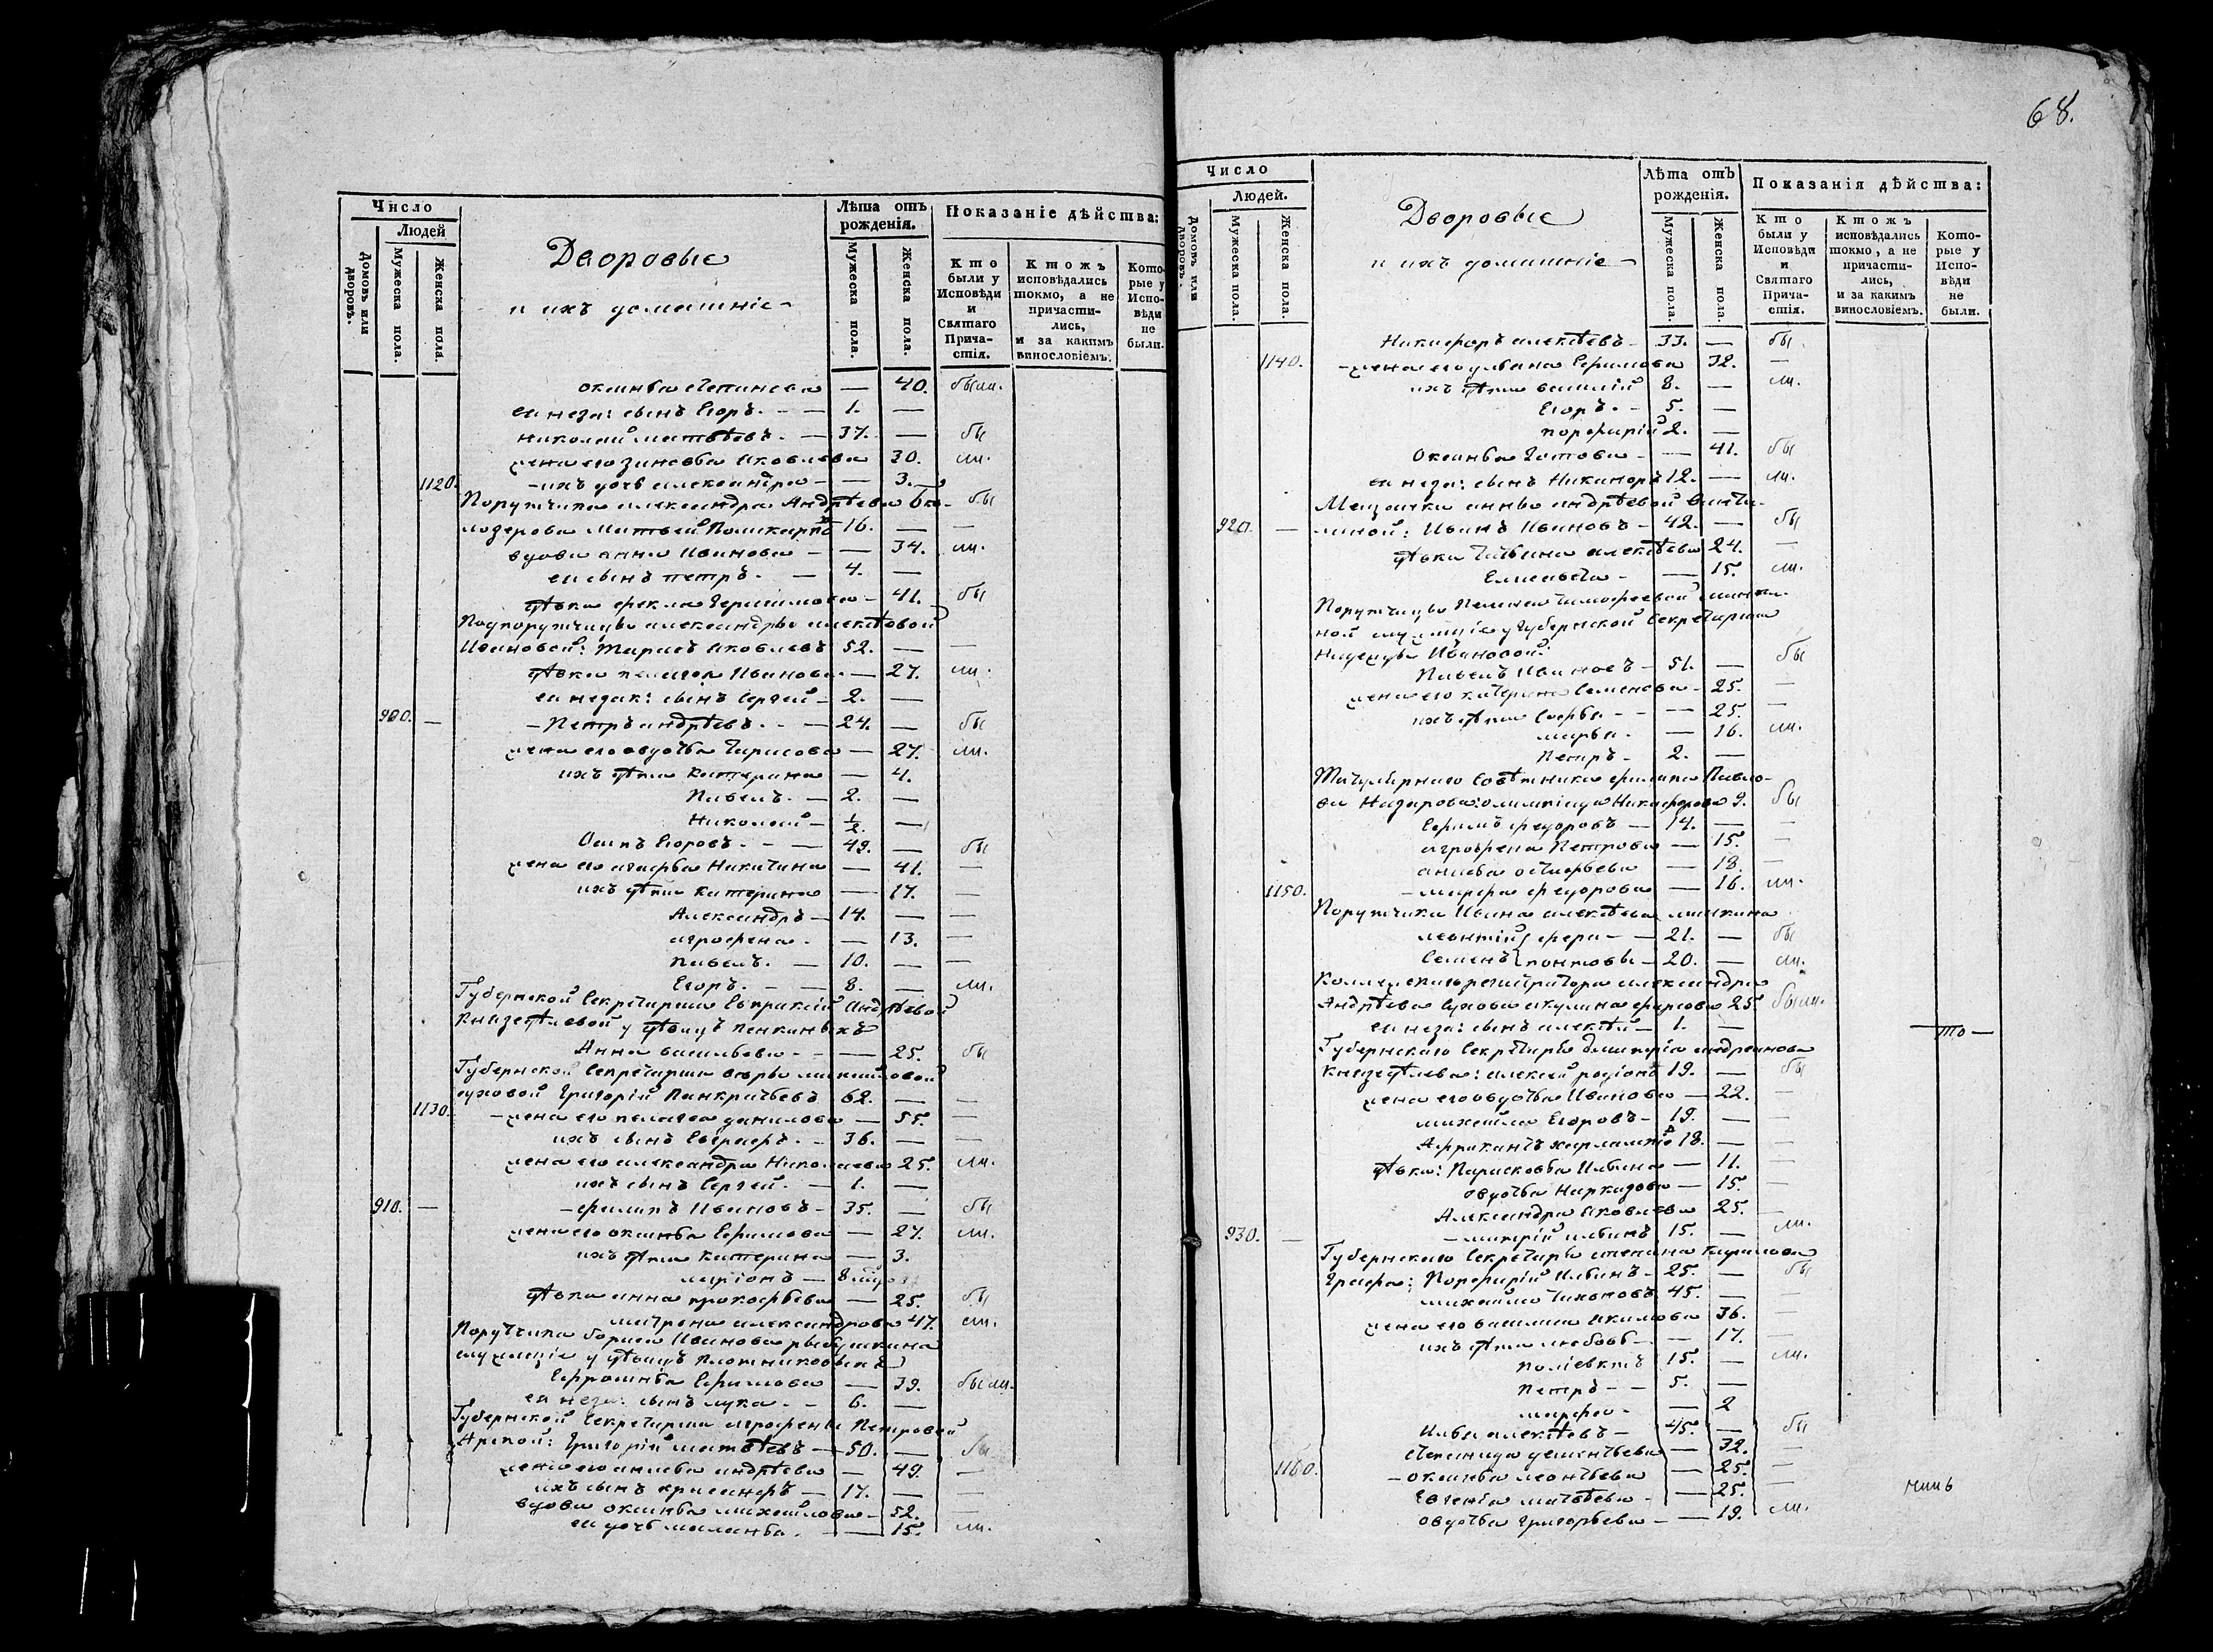 Число
Людей
Домовъ или дворовъ.
Мужеска пола.
Женска пола.
Дворовые
и ихъ домашнiе
Лѣта отъ рожденiя.
Мужеска пола.
Женска пола.
Показанiе дѣйства:
Кто были у Исповѣди и Святаго Причастiя.
Ктожъ исповѣдались токмо, а не причастились, и за какимъ винословiемъ.
Которые у Исповѣди не были.
— 40. были.
ея неза: сынъ Егоръ. — 1. —
Николай Матвѣевъ. — 37. — бы
жена его Зиновья Яковлева 30. ли.
1120. — ихъ дочь Александра — — 3. —
Порутчика Александра Андрѣева бы
Матвей 16. — —
вдова Анна Иванова — — 34. ли.
ея сынъ Петръ. — 4. —
дѣвка Фекла Герасимова — 41. бы
Подпорутчицы Александры Алексѣевой
Ивановой: Тарасъ Яковлевъ 52. — —
дѣвка Пелагея Иванова — 27. ли.
ея незак: сынъ Сергей — 2. —
900. — — Петръ Андрѣевъ. — 24. — бы
жена его Авдотья Тарасова — 27. ли.
ихъ дѣти Катерина — 4.
Павелъ. — 2. —
Николай — 1/2. —
Осипъ Егоровъ. — 49. — бы
жена его Агафья Никитина — 41. —
ихъ дѣти Катерина — 17. —
Александръ — 14. — —
Агрофена. — 13. —
Павелъ. — 10. — —
Егоръ. — 8. — ли.
Губернской Секретарши Евпраксiи Андрѣевой
у дѣвицъ
Анна Васильева — — 25. бы
Губернской Секретарши
Суховой Григорiй Панкратьевъ 62. — —
1130. — жена его Пелагея Данилова — 55. —
ихъ сынъ Евграфъ. — 36. — —
жена его Александра Николаева 25. ли.
ихъ сынъ Сергей. — 1. —
910. — — Филипъ Ивановъ — 35. — бы
жена его Оксинья Ефимова — 27. ли.
ихъ дѣти Катерина — 3.
— 8
дѣвка Анна Прокофьева — 25. бы
Матрона Александрова 47. ли.
Порутчика Бориса Иванова Рябушкина
служащiе у дѣвицъ Плотниковыхъ
Ефросинья Ефимова — 39. были.
ея неза: сынъ Лука. — 6. —
Губернской Секретарши Агрофены Петровой
Григорiй Матвѣевъ — 50. — бы
жена его Анисья Андрѣева — 49. —
ихъ сынъ — 17. — —
вдова Оксинья Михайлова — 52. —
ея дочь Маланья. — 15. ли.
68.
Число
Людей.
Домовъ или дворовъ.
Мужеска пола.
Женска пола.
Дворовые
и ихъ домашнiе —
Лѣта отъ рожденiя.
Мужеска пола.
Женска пола.
Показанiя дѣйства:
Кто были у Исповѣди и Святаго Причастiя.
Ктожъ исповѣдались токмо, а не причастились, и за какимъ винословiемъ.
Которые у Исповѣди не были.
Никифоръ Алексѣевъ — 33. — бы
1140. — жена его Ульяна Ефимова 32. —
ихъ дѣти Василiй 8. — ли.
Егоръ. — 5. —
Порфирiй 2. —
Оксинья Титова — — 41. бы
ея неза: сынъ Никаноръ 12. — ли.
Мещанки Анны Андрѣевой
920. — Иванъ Ивановъ — 42. — бы
дѣвки Татьяна Алексѣева 24. —
Елисавета — — 15. ли.
Порутчицы Пелагеи Тимофеевой
служащiе у Губернской Секретарши
Надежды Ивановой:
Павелъ Ивановъ — 51. — бы
жена его Катерина Семенова — 25. —
ихъ дѣти Софья — — 25. —
Марья. — 16. ли.
Петръ — 2. —
Титулярнаго Совѣтника Филипа Павло-
ва Назарова: Олимпiада Никифорова 9. бы
Ефимъ Федоровъ — 14. — —
Агрофена Петрова — 15. —
Анисья Остафьева — 18. —
1150. — Марфа Федорова — 16. ли.
Порутчика Ивана Алексѣева
Леонтiй — 21. — бы
Семенъ — 20. — ли.
Коллежскаго регистратора Александра
Андрѣева Сухова Акулина 25. были.
ея неза: сынъ Алексѣй — 1. —
то —
Губернскаго Секретаря Дмитрiя Андреянова
Алексей Родiонъ 19. — бы
жена его Авдотья Иванова — 22. —
Михайла Егоровъ — 19. —
Африканъ 18. — —
дѣвки: Парасковья Ильина — 11. —
Авдотья — 15. —
Александра Яковлева 25. —
930. — — Ильинъ 15. — ли.
Губернскаго Секретаря Степана
Порфирiй Ильинъ — 25. — бы
Михайло Тихоновъ 45. — —
жена его Василиса Акимова 36. —
ихъ дѣти Любовь — — 17. —
Полiевктъ 15. — ли.
Петръ — — 5. —
Марфа — — 2
Илья Алексѣевъ — 45. — бы
Степанида Дементьева — 32. —
1160. — Оксинья Леонтьева — 25. —
Евгенiя Матвѣева — 25. —
Авдотья Григорьева — — 19. ли.